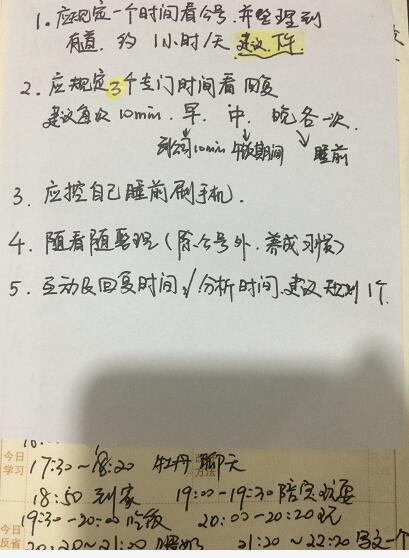 1. 应规定一个时间看公号,并整理到
有道. 约 1小时/天 建议.下午.
2. 应规定3个专门时间看回复
建议每次10min. 早. 中. 晚各一次.
到公司10min 午饭期间 睡前
3. 应控自己睡前刷手机.
4. 随看随整理(除公号外.养成习惯)
5. 互动及回复时间/分析时间.建议规划1个.
今日
学习
方法
17:30~18:20 牡丹 聊天
18:50 到家 19:00-19:30 陪 玩耍
19:30-20:00 吃饭 20:00-20:20玩
今日
反省
20:20~21:00 21:20~22:20 写文一个